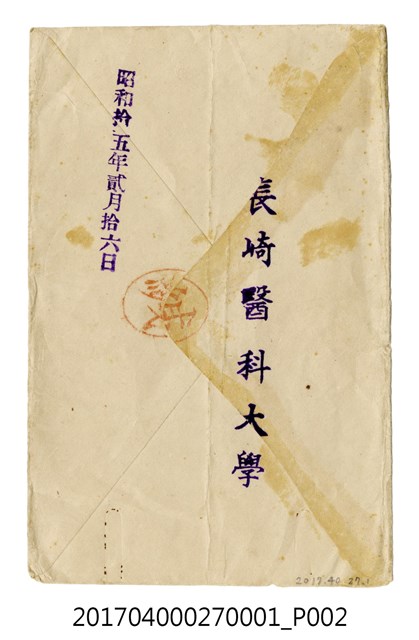 長崎醫科大學
昭和拾五年貳月拾六日
2017.40.27.1
201704000270001_P002